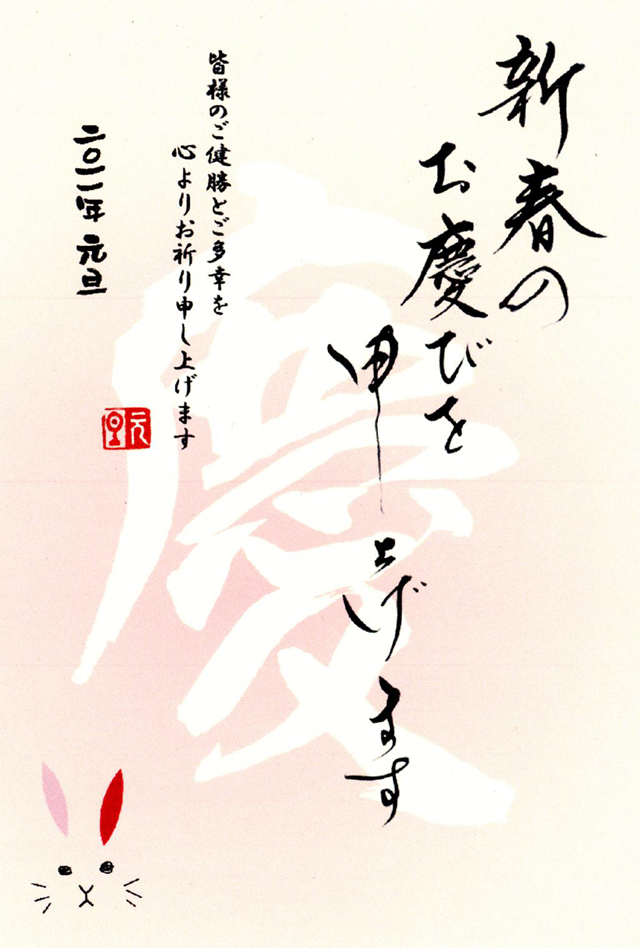 新春の
お慶びを
申し上げます
皆様のご健勝とご多幸を
心よりお祈り申し上げます
二〇一一年 元旦
元旦
慶